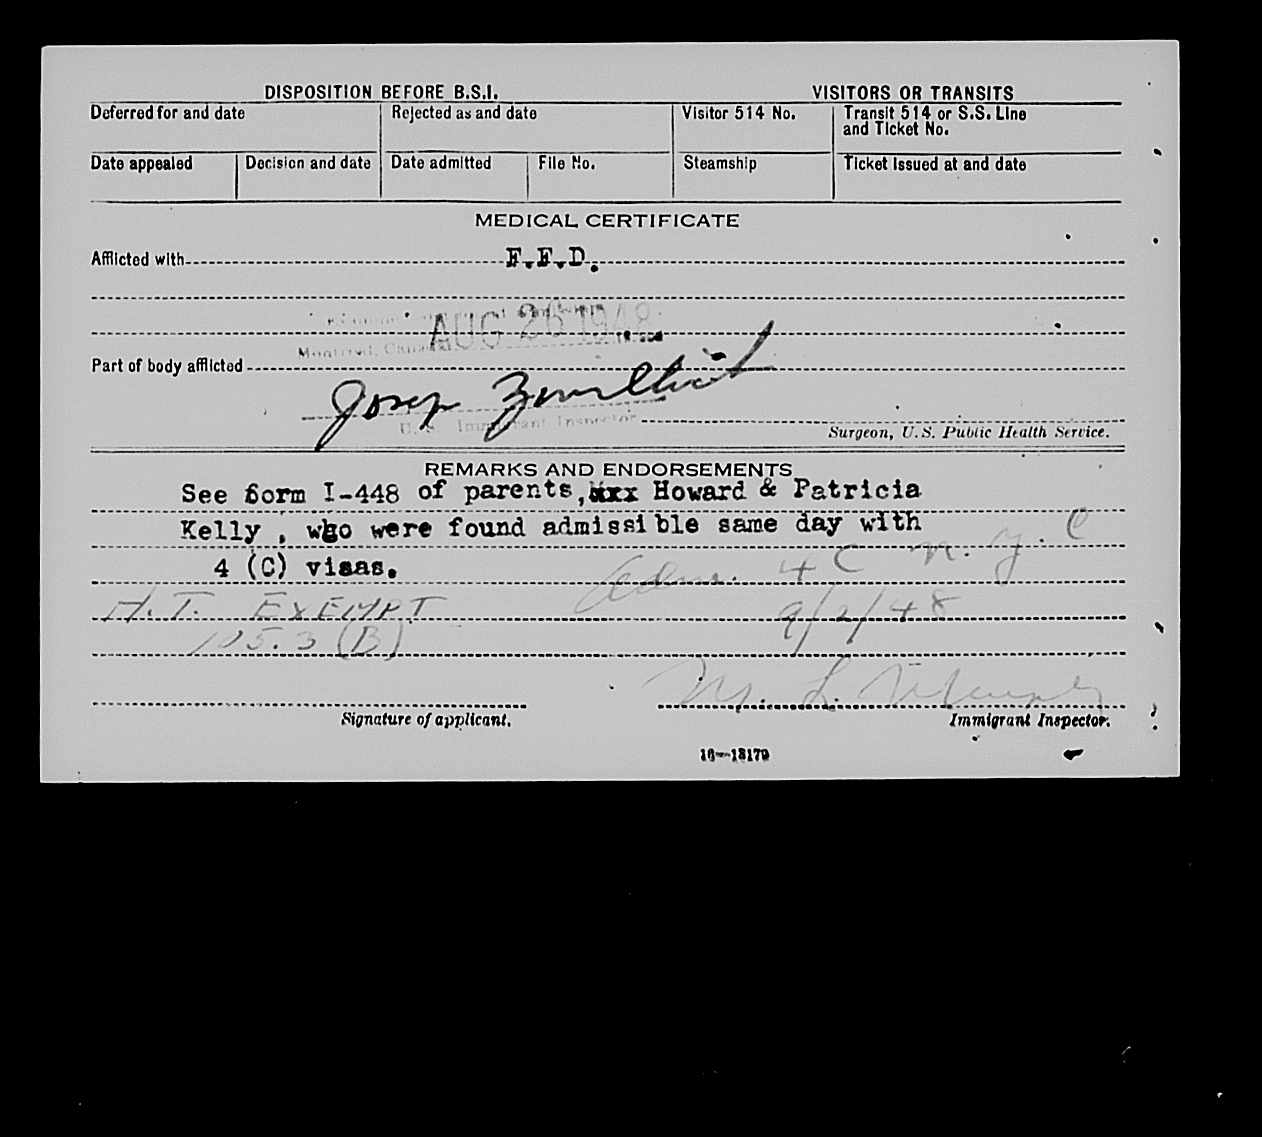 DISPOSITION BEFORE B.S.I.
VISITORS OR TRANSITS
Deferred for and date
Rejected as and date
Visitor 514 No.
Transit 514 or S.S. Line
and Ticket No.
Date appealed
Decision and date
Date admitted
File No.
Steamship
Ticket issued at and date
MEDICAL CERTIFICATE
Afflicted with F.F.D.
AUG 26 1948
Montreal, Canada
Part of body afflicted
U. S. Immigrant Inspector
Surgeon, U. S. Public Health Service.
REMARKS AND ENDORSEMENTS
See form I-448 of parents, Howard & Patricia
Kelly , who were found admissible same day with
4 (C) visas.
Adm. 4 C N.Y.C
H.T. EXEMPT
9/2/48
105.3 (B)
M. L.
Signature of applicant.
Immigrant Inspector.
16—13179